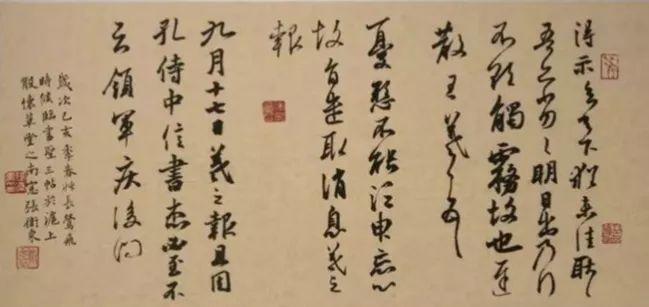 得示知足下猶未佳耿々
吾亦劣々明日出乃行
不欲觸霧故也遲
散王羲之頓首
憂懸不能須臾忘心
故旨遣取消息羲之
報
九月十七日羲之報且因
孔侍中信書想必至不
知領軍疾後問
歲次己亥季春草長鶯飛
時候臨書聖三帖於滬上
散懷草堂之南窗張衛東